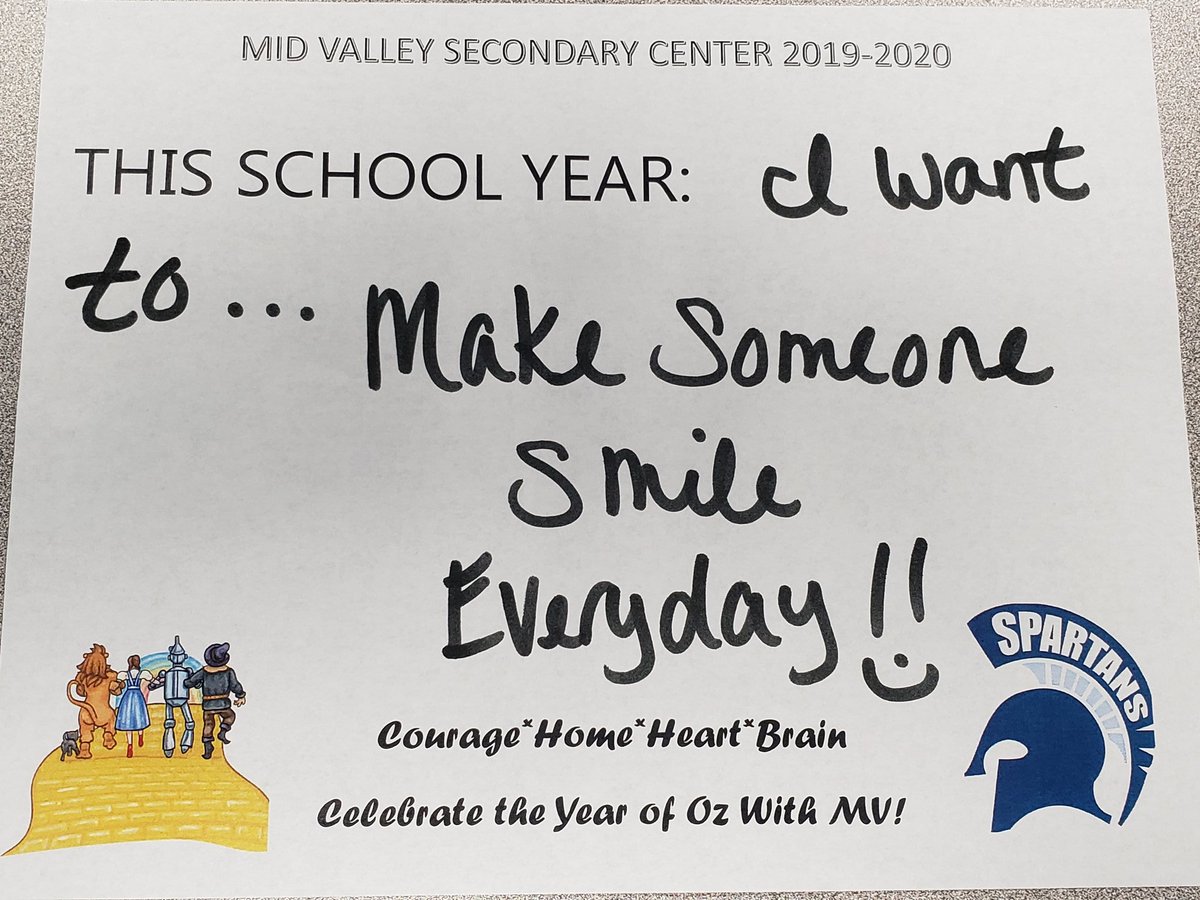 MID VALLEY SECONDARY CENTER 2019-2020
THIS SCHOOL YEAR: I want
to... Make Someone
Smile
Everyday!!
SPARTANS
Courage*Home*Heart*Brain
Celebrate the Year of Oz With MV!